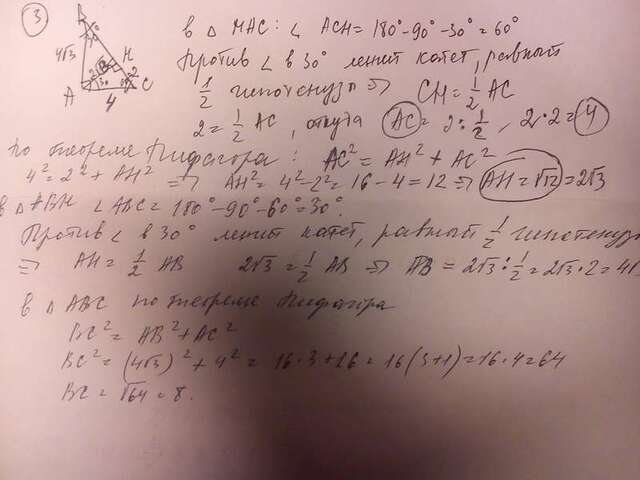 3
B
4√3
H
2√3
2
A
30°
60°
C
4
в △ HAC: ∠ ACH = 180° - 90° - 30° = 60°
Против ∠ в 30° лежит катет, равный
1/2 гипотенузы ⇒ CH = 1/2 AC
2 = 1/2 AC, откуда AC = 2 : 1/2, 2·2 = 4
По теореме Пифагора: AC² = AH² + AC²
4² = 2² + AH² ⇒ AH² = 4² - 2² = 16 - 4 = 12 ⇒ AH = √12 = 2√3
в △ ABH ∠ ABC = 180° - 90° - 60° = 30°.
Против ∠ в 30° лежит катет, равный 1/2 гипотенузы
⇒ AH = 1/2 AB 2√3 = 1/2 AB ⇒ AB = 2√3 : 1/2 = 2√3 · 2 = 4√
в △ ABC по теореме Пифагора
BC² = AB² + AC²
BC² = (4√3)² + 4² = 16·3 + 16 = 16(3+1) = 16·4 = 64
BC = √64 = 8.